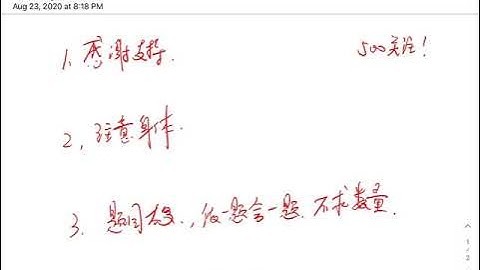 Aug 23, 2020 at 8:18 PM
1、感谢支持. 500关注!
2、注意身体.
3、题目太多., 做一题会一题. 不求数量.
1
2